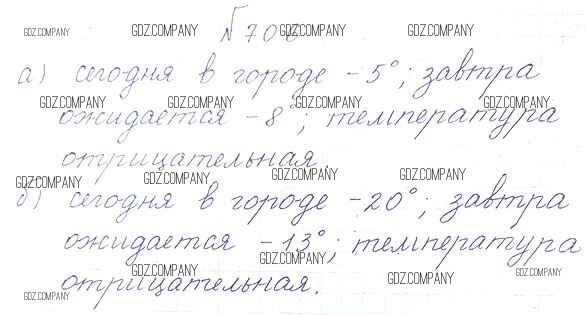 № 706
а) сегодня в городе -5°; завтра
ожидается -8°; температура
отрицательная.
б) сегодня в городе -20°; завтра
ожидается -13°; температура
отрицательная.
GDZ.COMPANY GDZ.COMPANY GDZ.COMPANY GDZ.COMPANY
GDZ.COMPANY GDZ.COMPANY GDZ.COMPANY GDZ.COMPANY
GDZ.COMPANY GDZ.COMPANY GDZ.COMPANY GDZ.COMPANY
GDZ.COMPANY GDZ.COMPANY GDZ.COMPANY GDZ.COMPANY